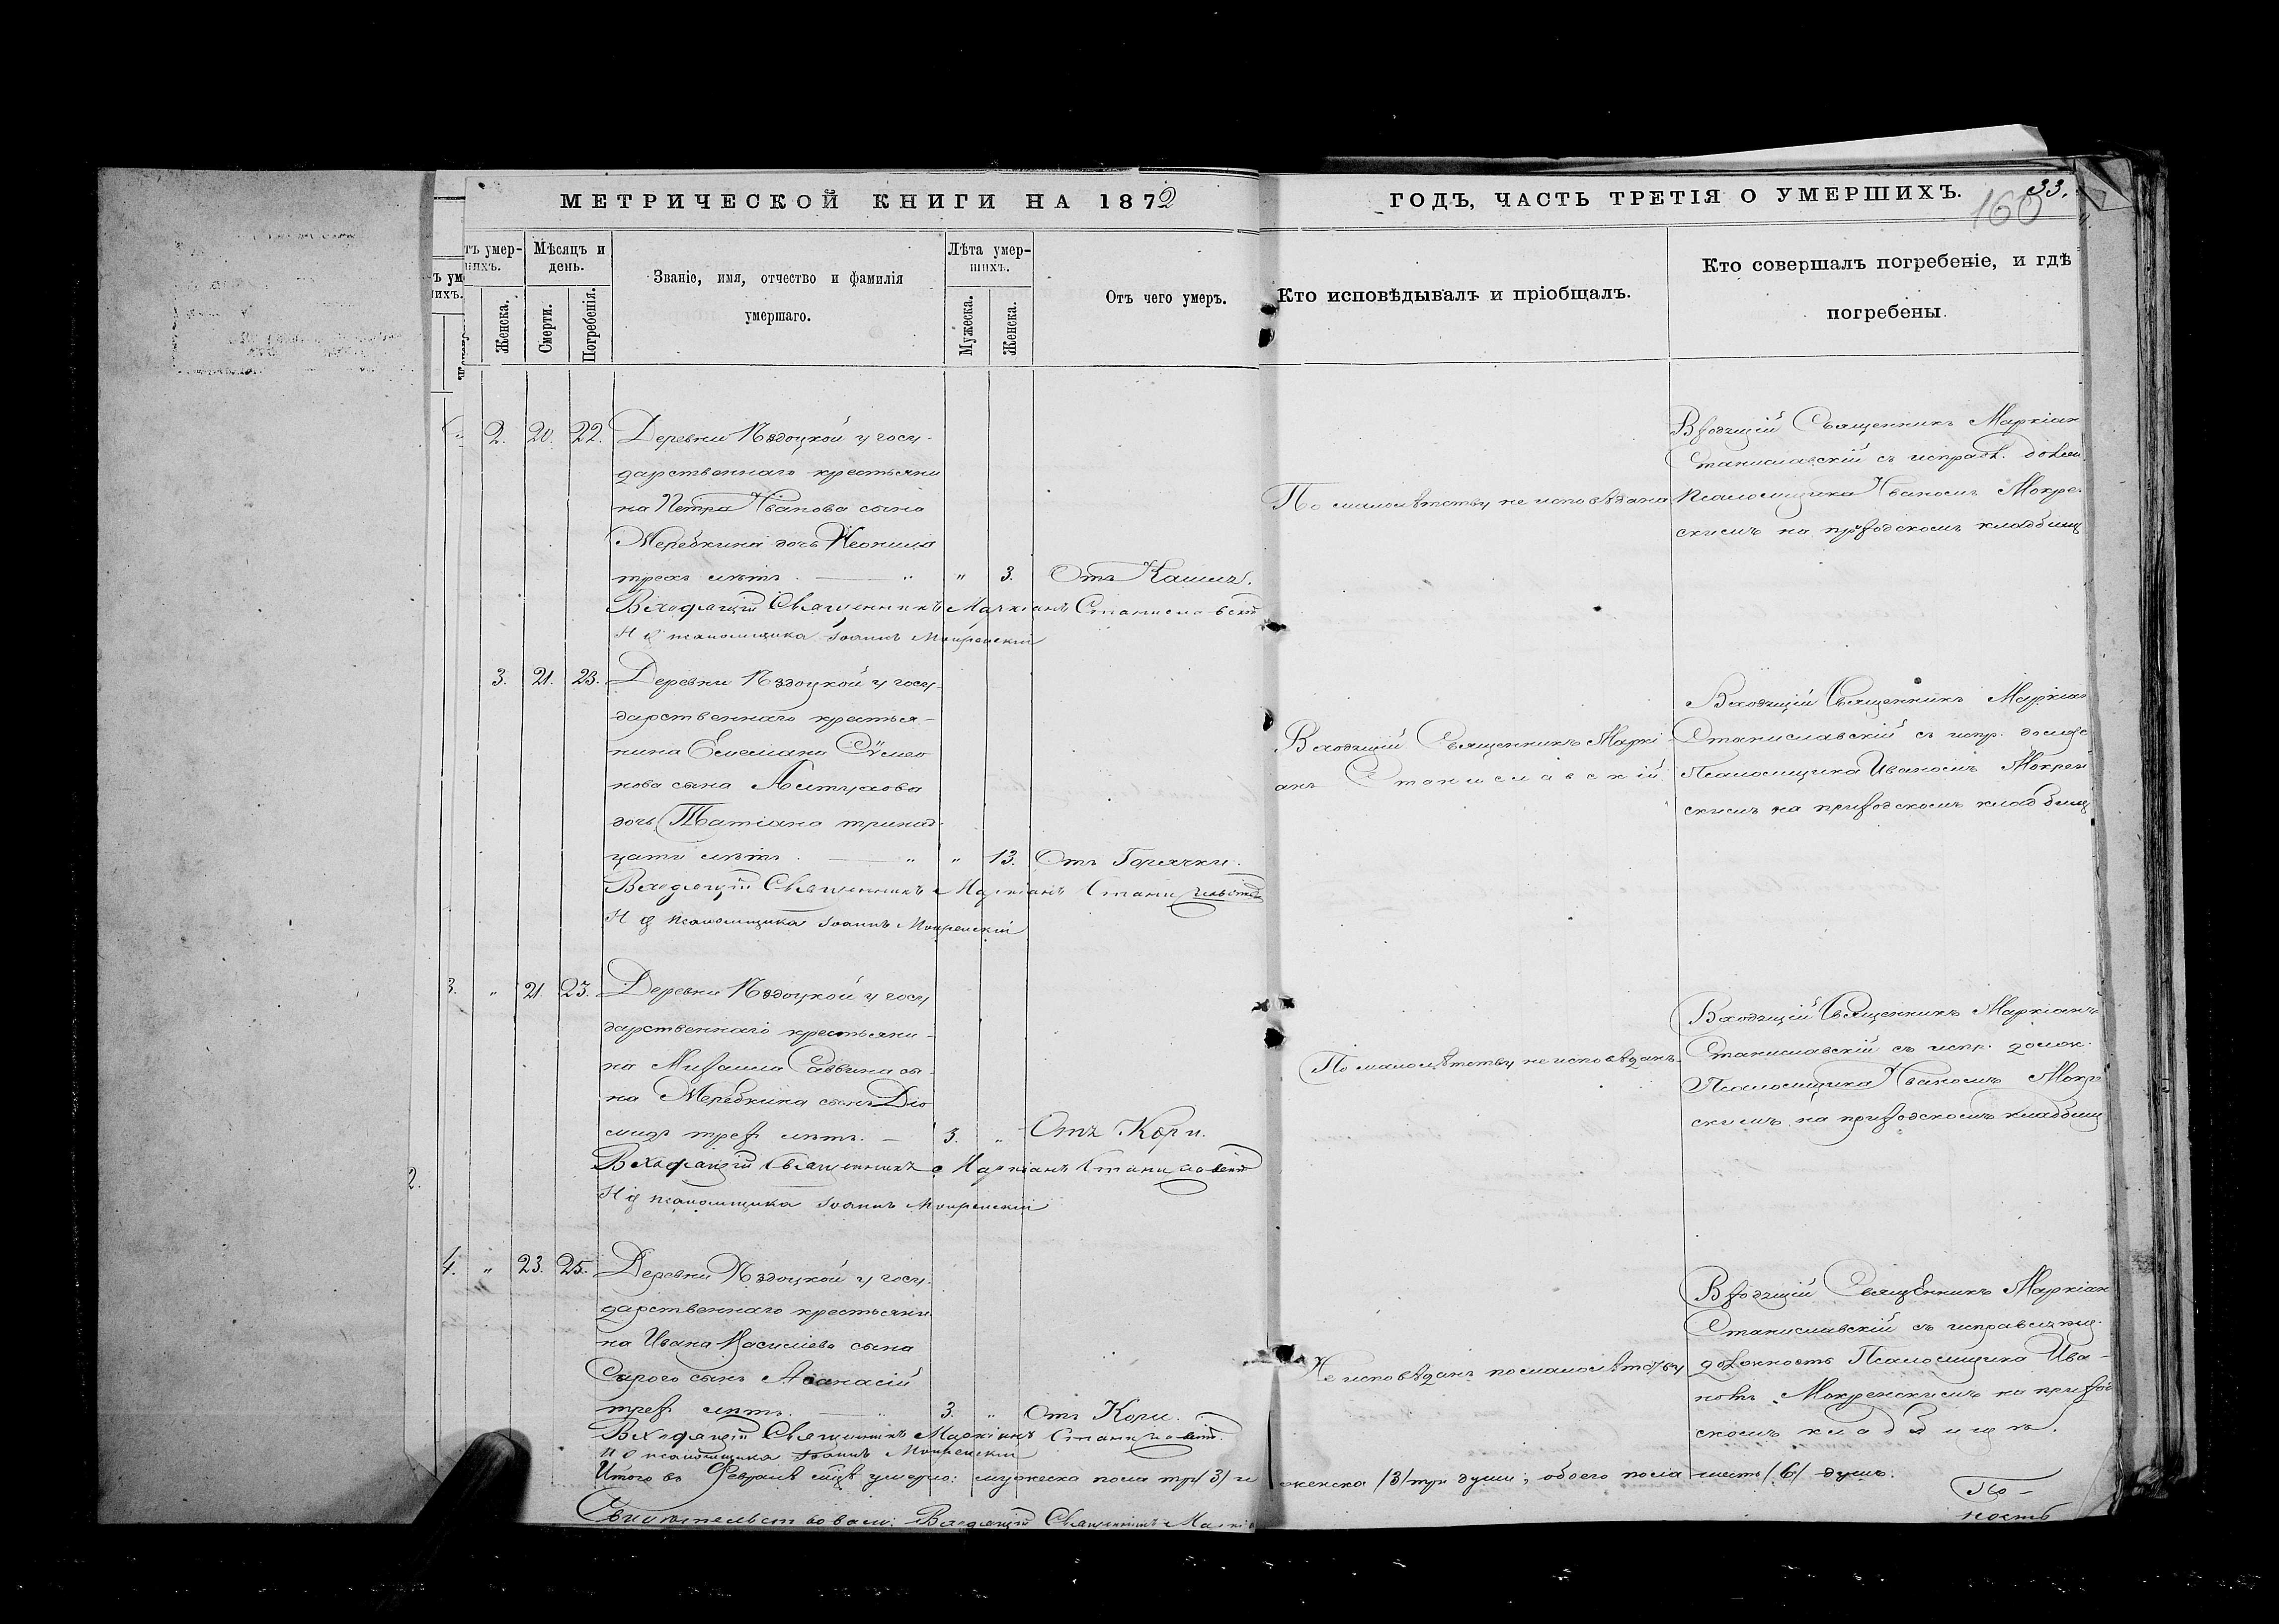 МЕТРИЧЕСКОЙ КНИГИ НА 1872
ГОДЪ, ЧАСТЬ ТРЕТІЯ О УМЕРШИХЪ.
33.
160
тъ умер-
шихъ.
Женска.
Мѣсяцъ и
день.
Смерти.
Погребенія.
Званіе, имя, отчество и фамилія
умершаго.
Лѣта умер-
шихъ.
Мужеска.
Женска.
Отъ чего умеръ.
Кто исповѣдывалъ и пріобщалъ.
Кто совершалъ погребеніе, и гдѣ
погребены.
2. 20. 22. Деревни у госу-
дарственнаго крестьяни
на Петра Иванова сына
дочь
трехъ лѣтъ. " " 3. Отъ Кашля.
Входящій Священникъ Маркіанъ Станиславскій
И д псаломщика Іоаннъ Мокренскій
По малолѣтству не исповѣдана
Входящій Священникъ Маркіан
Станиславскій съ исправ.
Псаломщика Иваномъ Мокре-
скимъ на приходскомъ кладбищ
3. 21. 23. Деревни у госу-
дарственнаго крестья-
нина
нова сына
дочь Татіана тринад-
цати лѣтъ. " " 13. Отъ Горячки.
Входящій Священникъ Маркіанъ Станиславскій
И д псаломщика Іоаннъ Мокренскій
Входящій Священникъ Маркі-
анъ Станиславскій.
Входящій Священникъ Маркіан
Станиславскій съ испр.
Псаломщика Иваномъ Мокрен
скимъ на приходскомъ кладбищ
3. " 21. 23. Деревни у госу
дарственнаго крестьяни-
на Михаила Саввина сы-
на сынъ Дио
мидъ трех лѣтъ. 3. " Отъ Кори.
Входящій Священникъ Маркіанъ Станиславскій
И д псаломщика Іоаннъ Мокренскій
По малолѣтству не исповѣданъ.
Входящій Священникъ Маркіанъ
Станиславскій съ испр. долж.
Псаломщика Иваномъ Мокре
скимъ на приходскомъ кладбищ
2.
4. " 23. 25. Деревни у госу-
дарственнаго крестьяни
на Ивана Василіева сына
Сѣрого сынъ Аѳанасій
трех лѣтъ. " 3. " Отъ Кори.
Входящій Священникъ Маркіанъ Станиславскій
И д псаломщика Іоаннъ Мокренскій
Не исповѣданъ по малолѣтству
Входящій Священникъ Маркіан
Станиславскій съ исправляющ.
должность Псаломщика Ива-
номъ Мокренскимъ на приход
скомъ кладбищѣ.
Итого въ Февралѣ м̃цѣ умерло: мужеска пола три /3/ и женска /3/ три души, обоего пола шесть /6/ душъ.
Свидѣтельствовали: Входящій Священникъ Маркіа
По-
ность